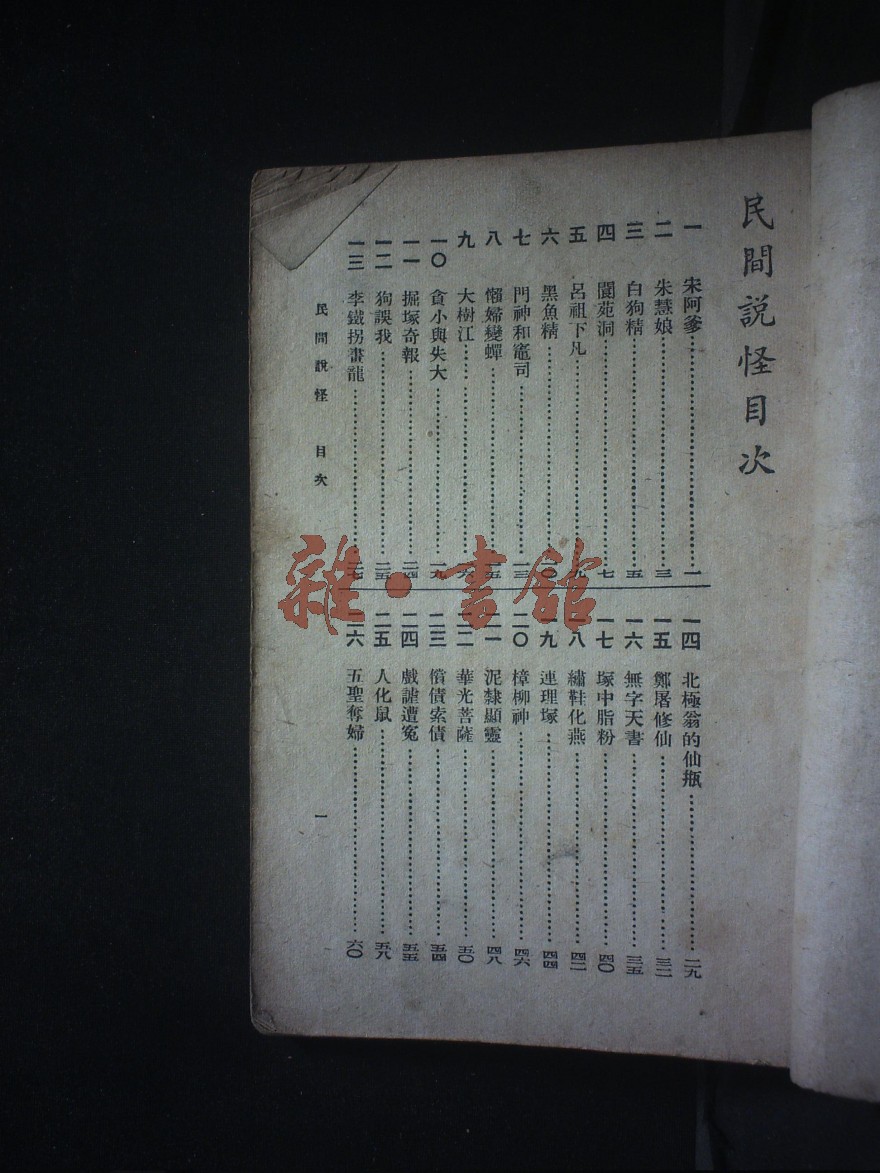 民間說怪目次
一 宋阿爹 一
二 朱慧娘 三
三 白狗精 五
四 閬苑洞 七
五 呂祖下凡 九
六 黑魚精 一〇
七 門神和竈司 一三
八 懶婦變蟬 一五
九 大樹江
一〇 貪小與失大 一九
一一 掘塚奇報 二四
一二 狗誤我 二五
一三 李鐵拐畫龍 二七
一四 北極翁的仙瓶 二九
一五 鄭屠修仙 三二
一六 無字天書 三五
一七 塚中脂粉 四〇
一八 繡鞋化燕 四二
一九 連理塚 四四
二〇 樟柳神 四六
二一 泥隸顯靈 四八
二二 華光菩薩 五〇
二三 償債索債 五四
二四 戲謔遭冤 五五
二五 人化鼠 五八
二六 五聖奪婦 六〇
民間說怪 目次 一
雜·書館